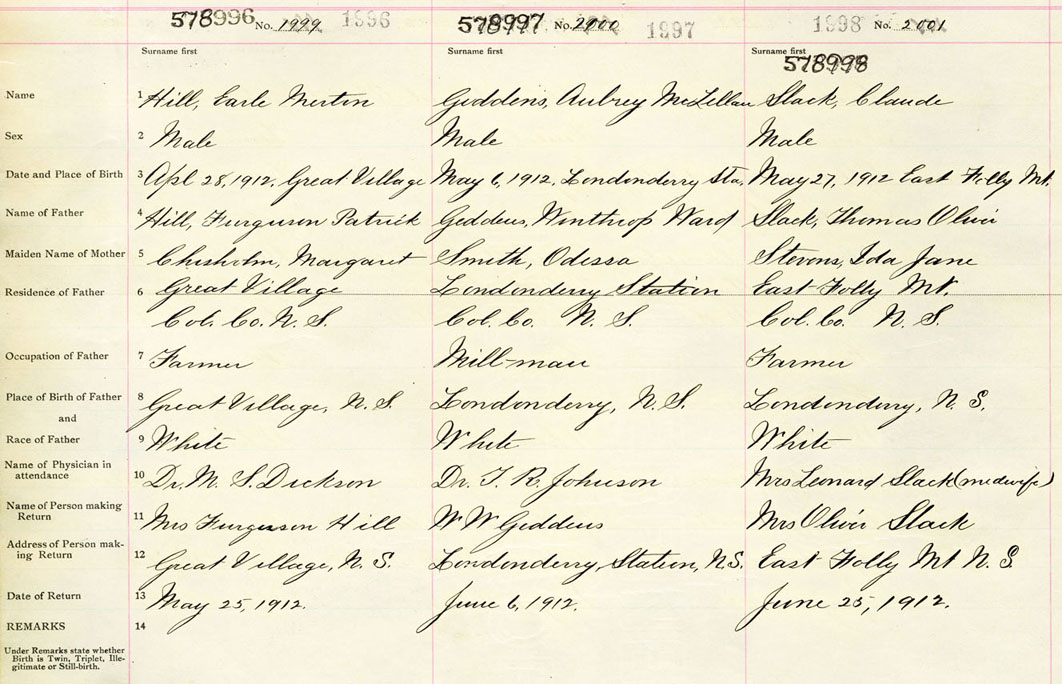 578996 No. 1999 1996 578997 No. 2000 1997 1998 No. 2001
Surname first Surname first Surname first
578998
Name 1 Hill, Earle Merton Geddens, Aubrey McLellan Slack, Claude
Sex 2 Male Male Male
Date and Place of Birth 3 Apl 28, 1912, Great Village May 6, 1912, Londonderry Sta, May 27, 1912 East Folly Mt.
Name of Father 4 Hill, Furguson Patrick Geddens, Winthrop Ward Slack, Thomas Oliver
Maiden Name of Mother 5 Chisholm, Margaret Smith, Odessa Stevens, Ida Jane
Residence of Father 6 Great Village Londonderry Station East Folly Mt.
Col. Co. N. S. Col. Co. N. S. Col. Co. N. S.
Occupation of Father 7 Farmer Mill-man Farmer
Place of Birth of Father 8 Great Village, N. S. Londonderry, N. S. Londonderry, N. S.
and
Race of Father 9 White White White
Name of Physician in
attendance 10 Dr. M. S. Dickson Dr. T. R. Johnson Mrs Leonard Slack (midwife)
Name of Person making
Return 11 Mrs Furguson Hill W W Geddens Mrs Oliver Slack
Address of Person mak-
ing Return 12 Great Village, N. S. Londonderry, Station, N.S. East Folly Mt N. S
Date of Return 13 May 25, 1912. June 6, 1912. June 25, 1912.
REMARKS 14
Under Remarks state whether
Birth is Twin, Triplet, Ille-
gitimate or Still-birth.